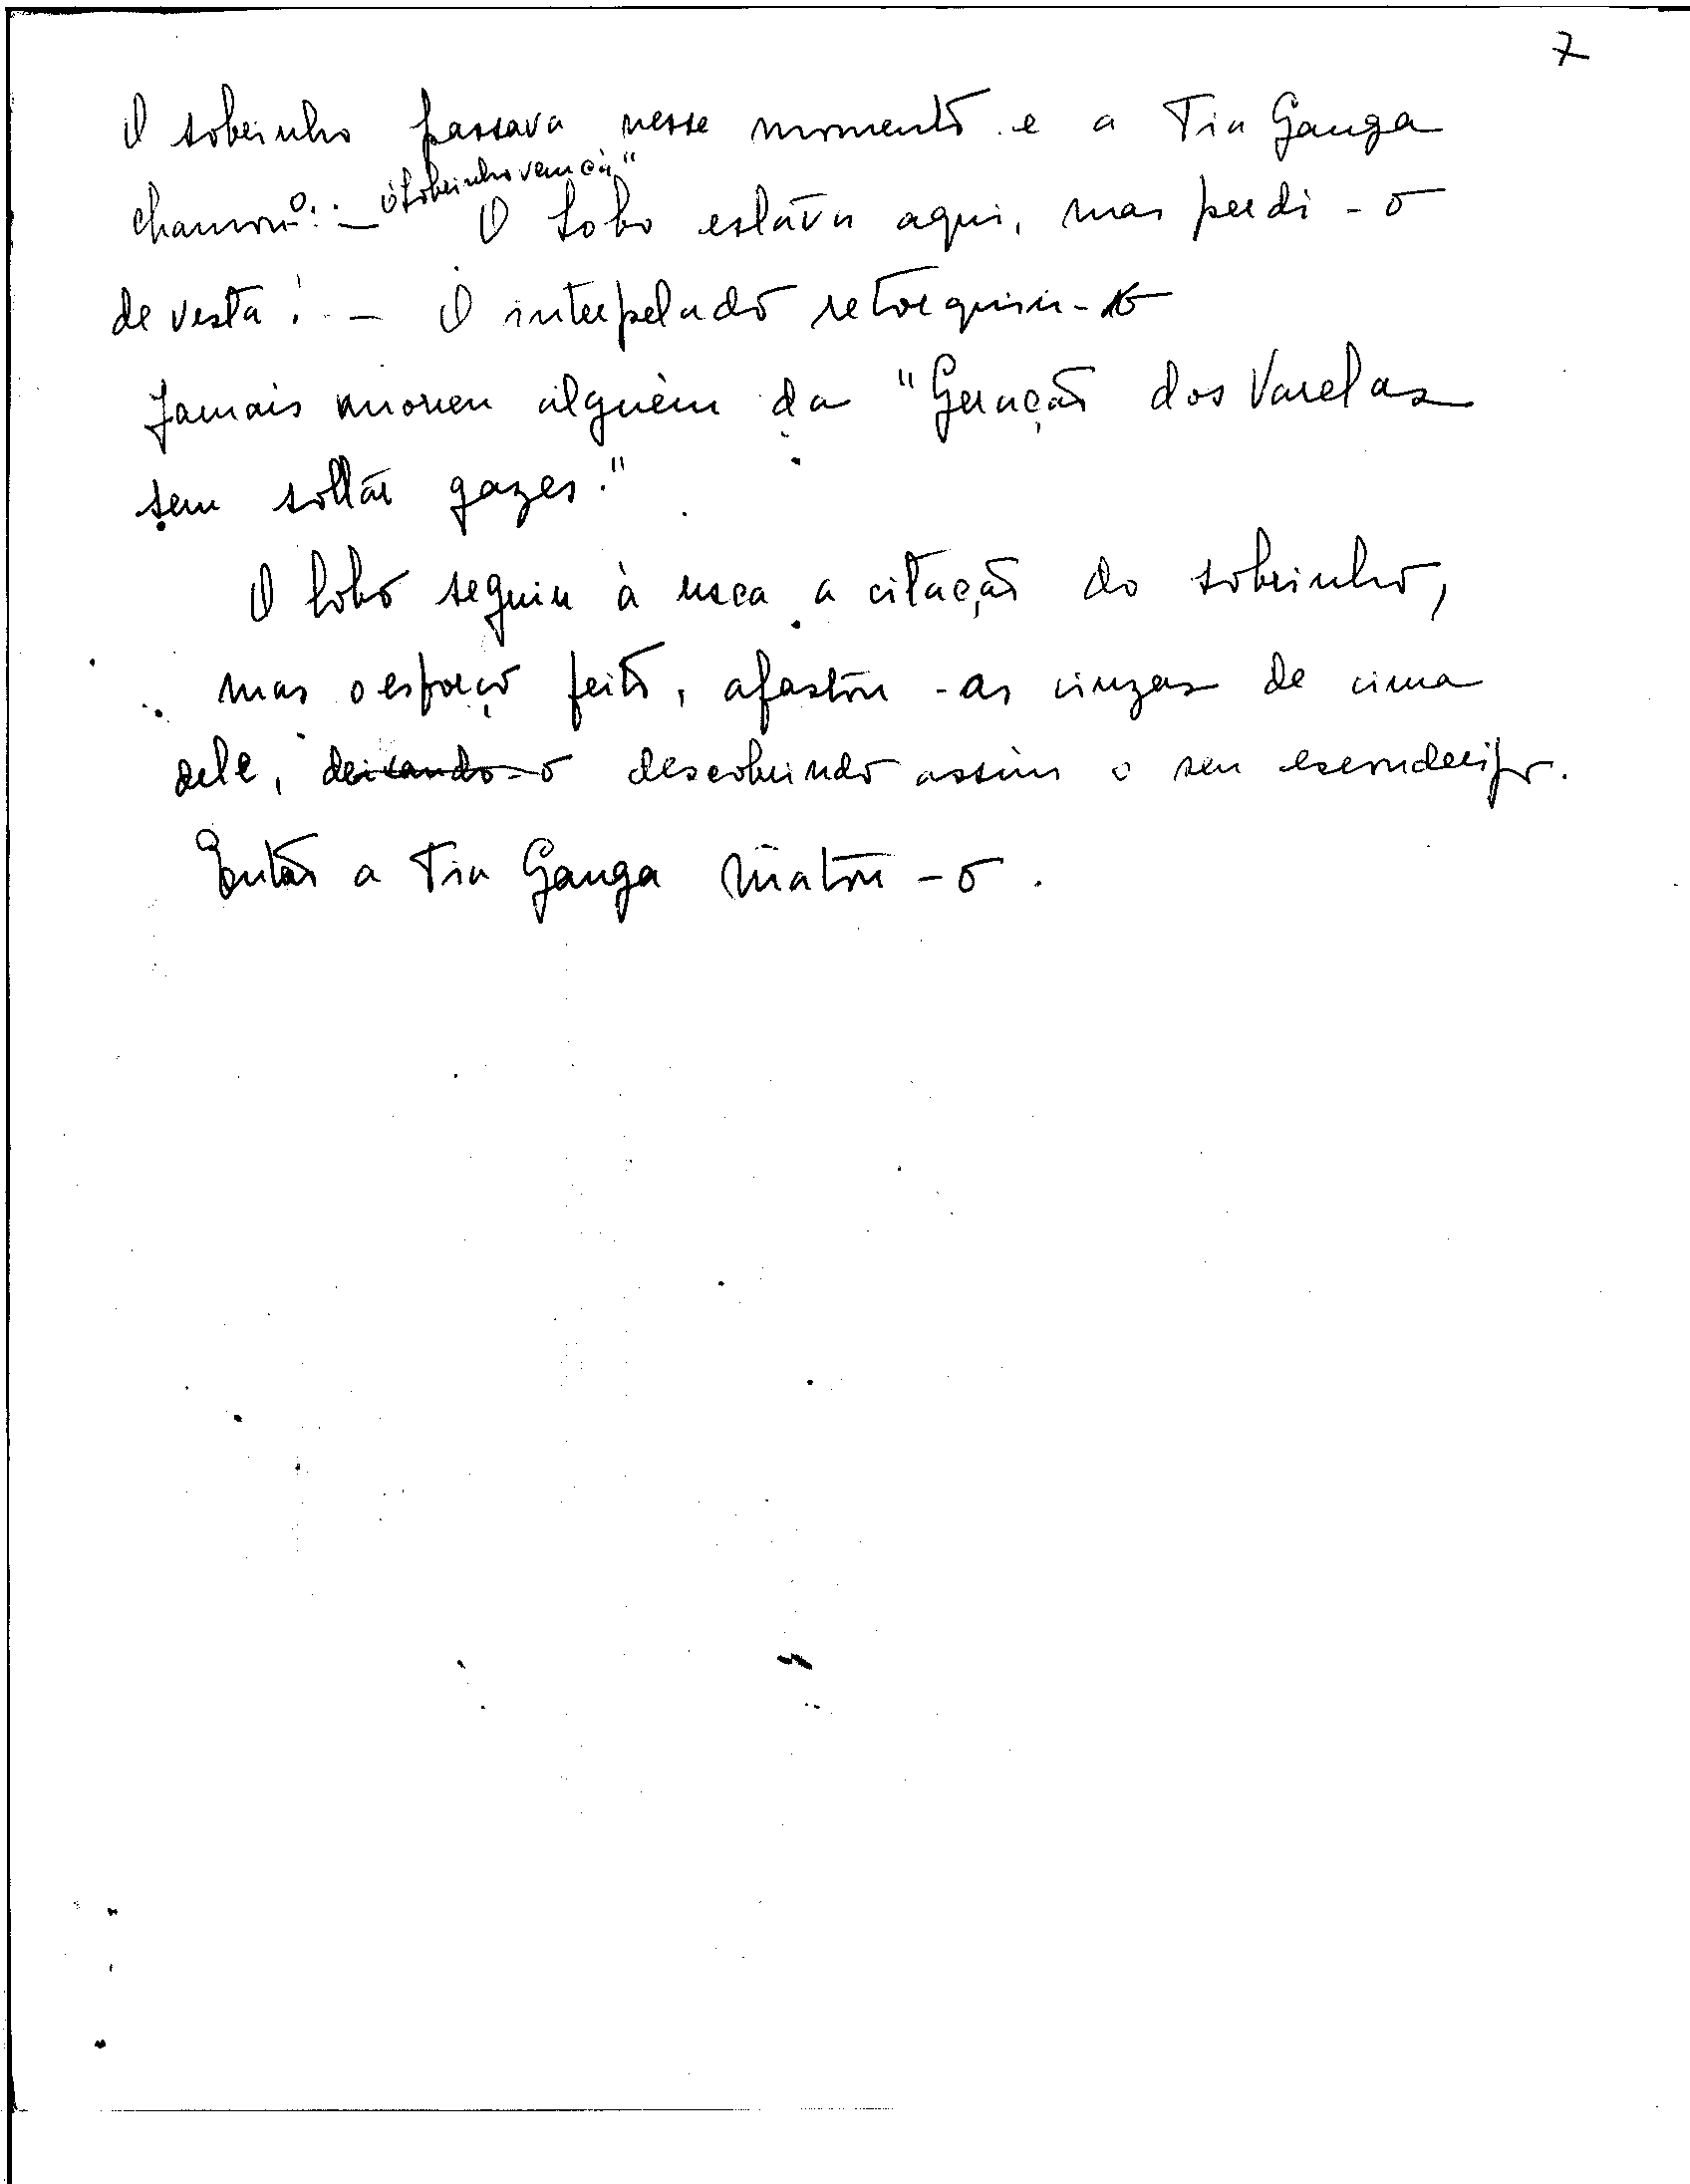 7
O sobrinho passava nesse momento e a Tia Ganga
chamou-o: - ó sobrinho vem cá"
O Lobo estava aqui, mas perdi-o
de vesta! - O interpelado retorquiu-
Jamais moreu alguèm da "Geração dos Varelas
sem soltar gazes."
O lobo seguiu à risca a citação do sobrinho,
mas o esforço feito, afastou-as cinzas de cima
dele, deixando-o descobrindo assim o seu esconderijo.
Então a Tia Ganga matou-o.